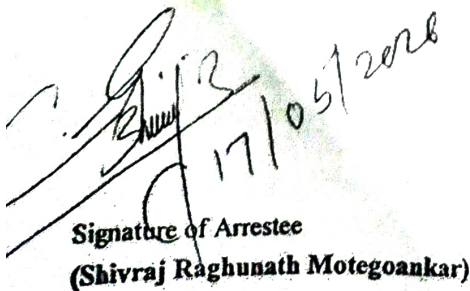 17/05/2026
Signature of Arrestee
(Shivraj Raghunath Motegoankar)